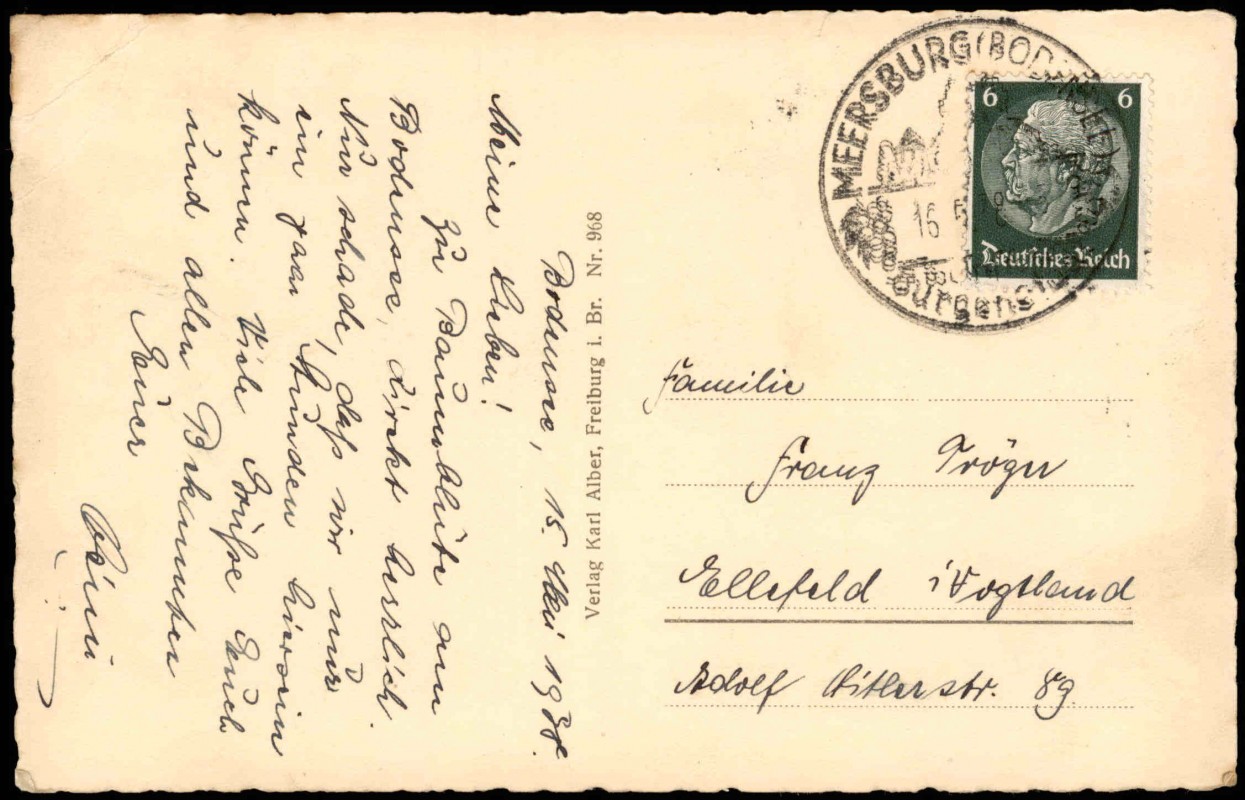 Bodensee, 15. Mai 1938.
Meine Lieben!
Zur Baumblüte am
Bodensee, direkt herrlich.
Nur schade, daß wir nur
ein paar Stunden hier sein
können. Viele Grüße Euch
und allen Bekannten
Euer
Verlag Karl Alber, Freiburg i. Br. Nr. 968
MEERSBURG (BODENSEE)
16
6 6
Deutsches Reich
Familie
Franz Tröger
Ellefeld i/Vogtland
Adolf Hitlerstr. 89